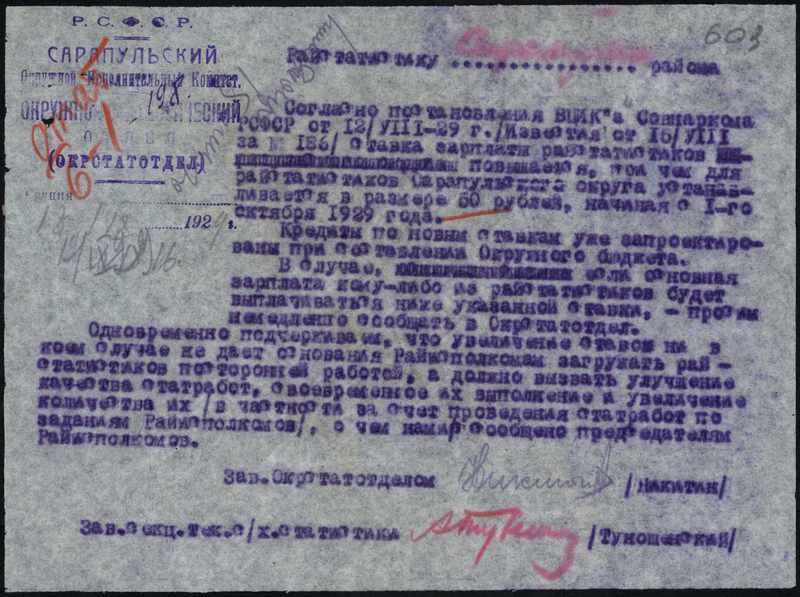 Р. С. Ф. С. Р.
САРАПУЛЬСКИЙ
Окружной Исполнительный Комитет.
(ОКРСТАТОТДЕЛ)
192
603
Райстатистику ................. района
Согласно постановления ВЦИК"а Совнаркома
РСФСР от 12/VIII-29 г./Известия от 15/VIII
за № 186/ ставка зарплаты райстатистиков
повышается, при чем для
райстатистиков Сарапульского округа устанав-
ливается в размере 60 рублей, начиная с I-го
октября 1929 года.
Кредиты по новым ставкам уже запроектиро-
ваны при составлении Окружного бюджета.
В случае, если основная
зарплата кому-либо из райстатистиков будет
выплачиваться ниже указанной ставки, - просим
немедленно сообщать в Окрстатотдел.
Одновременно подчеркиваем, что увеличение ставок ни в
коем случае не дает основания Райисполкомам загружать рай-
статистиков посторонней работой, а должно вызвать улучшение
качества статработ, своевременное их выполнение и увеличение
количества их /в частности за счет проведения статработ по
заданиям Райисполкомов/, о чем нами сообщено председателям
Райисполкомов.
Зав.Окрстатотделом /Никитин/
Зав.секц.тек.с/х.статистики /Туношенский/